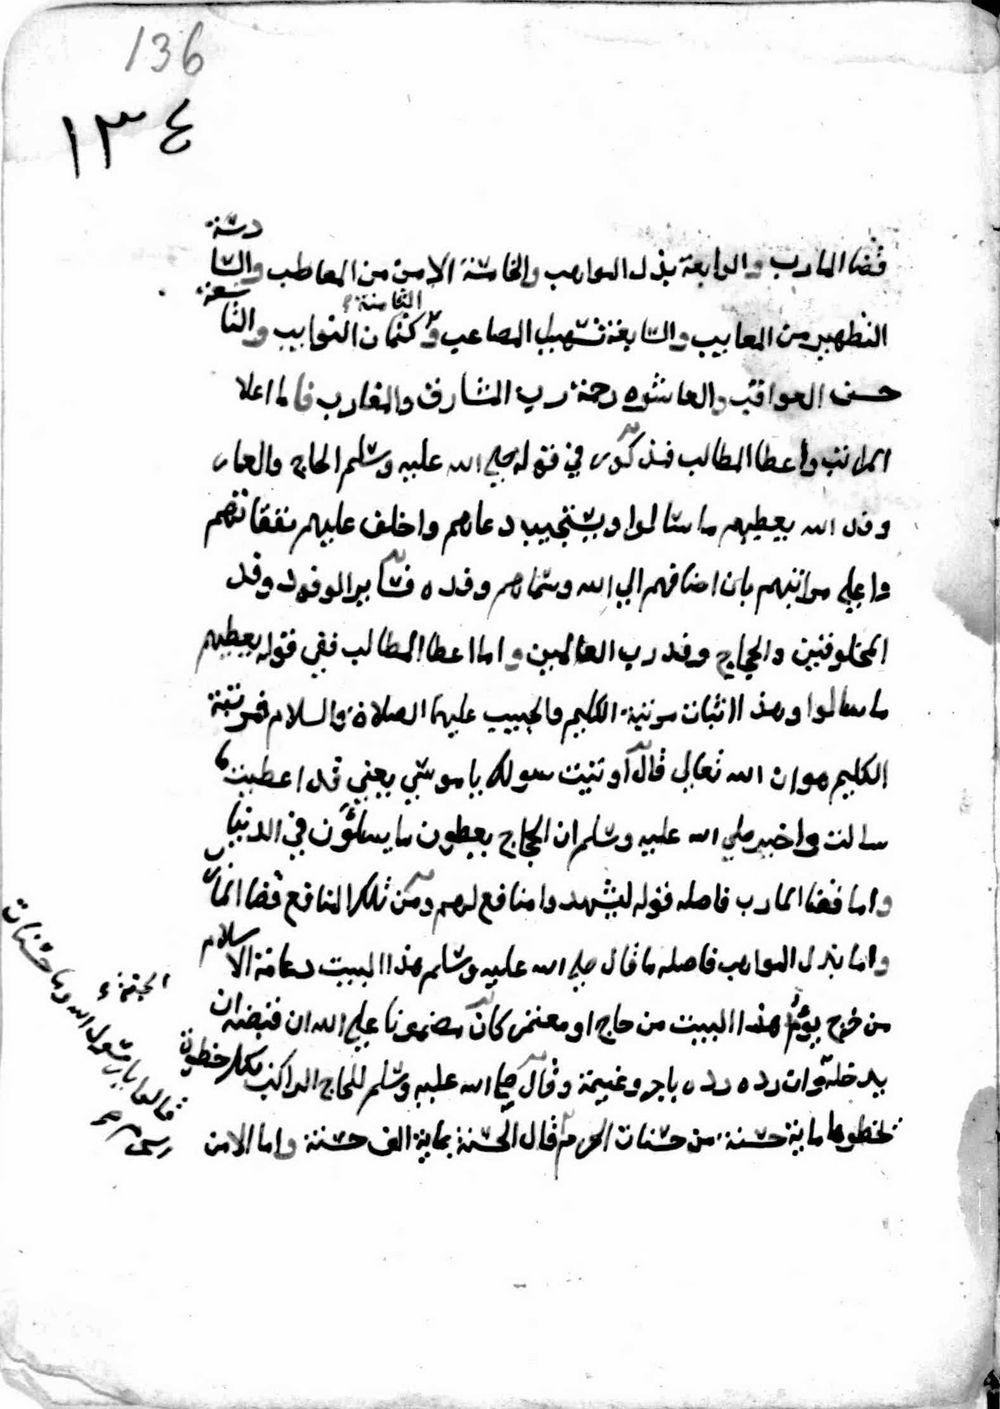 136
١٣٤
قضا المارب والرابعة بذل المواهب والخامسة الامن من المعاطب والسا
دسة
التطهير من المعايب والسابعة تسهيل المصاعب و كتمان النوايب والتا
الثامنة
سعة
حسن العواقب والعاشره رحمة رب المشارق والمغارب فاما اعلا
المراتب واعطا المطالب فمذكور في قوله صلي الله عليه وسلم الحاج والعمار
وفد الله يعطيهم ما سالوا ويستجيب دعاهم واخلف عليهم نفقاتهم
واعلي مراتبهم بان اضافهم الي الله وسماهم وفده فساير الوفود وفد
المخلوقين والحجاج وفد رب العالمين واما اعطا المطالب ففي قوله يعطيهم
ما سالوا وهذا اثبات مرتبة الكليم والحبيب عليهما الصلاة والسلام فمرتبة
الكليم هو ان الله تعالي قال اوتيت سولك يا موسي يعني قد اعطيت ما
سالت واخبر صلي الله عليه وسلم ان الحجاج يعطون ما يسالون في الدنيا
واما قضا المارب فاصله قوله ليشهدوا منافع لهم ومن تلك المنافع قضا
واما بذل المواهب فاصله ما قال صلي الله عليه وسلم هذا البيت دعامة الاسلام
من خرج يؤم هذا البيت من حاج او معتمر كان مضمونا علي الله ان قبضه ان
يدخله وان رده رده باجر وغنيمة وقال صلي الله عليه وسلم للحاج الراكب بكل خطوة
تخطوها ماية حسنة من حسنات الحرم قال الحسنة بماية الف حسنة واما الامن
الجنة
قالوا يا رسول الله وما حسنات